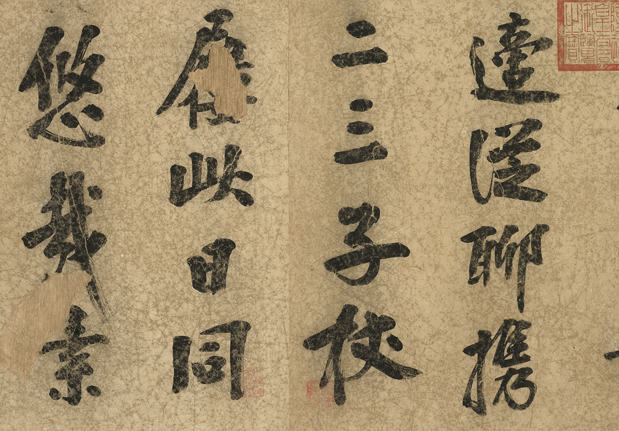 從聊携
二三子杖
履此日同
悠哉素